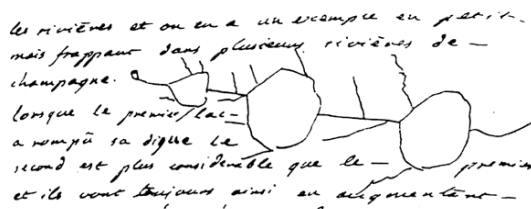 les rivières et on en a un exemple en petit
mais frappant dans plusieurs rivières de —
champagne.
lorsque le premier lac —
a rompû sa digue le
second est plus considerable que le — premier
et ils vont toujours ainsi en augmentant —